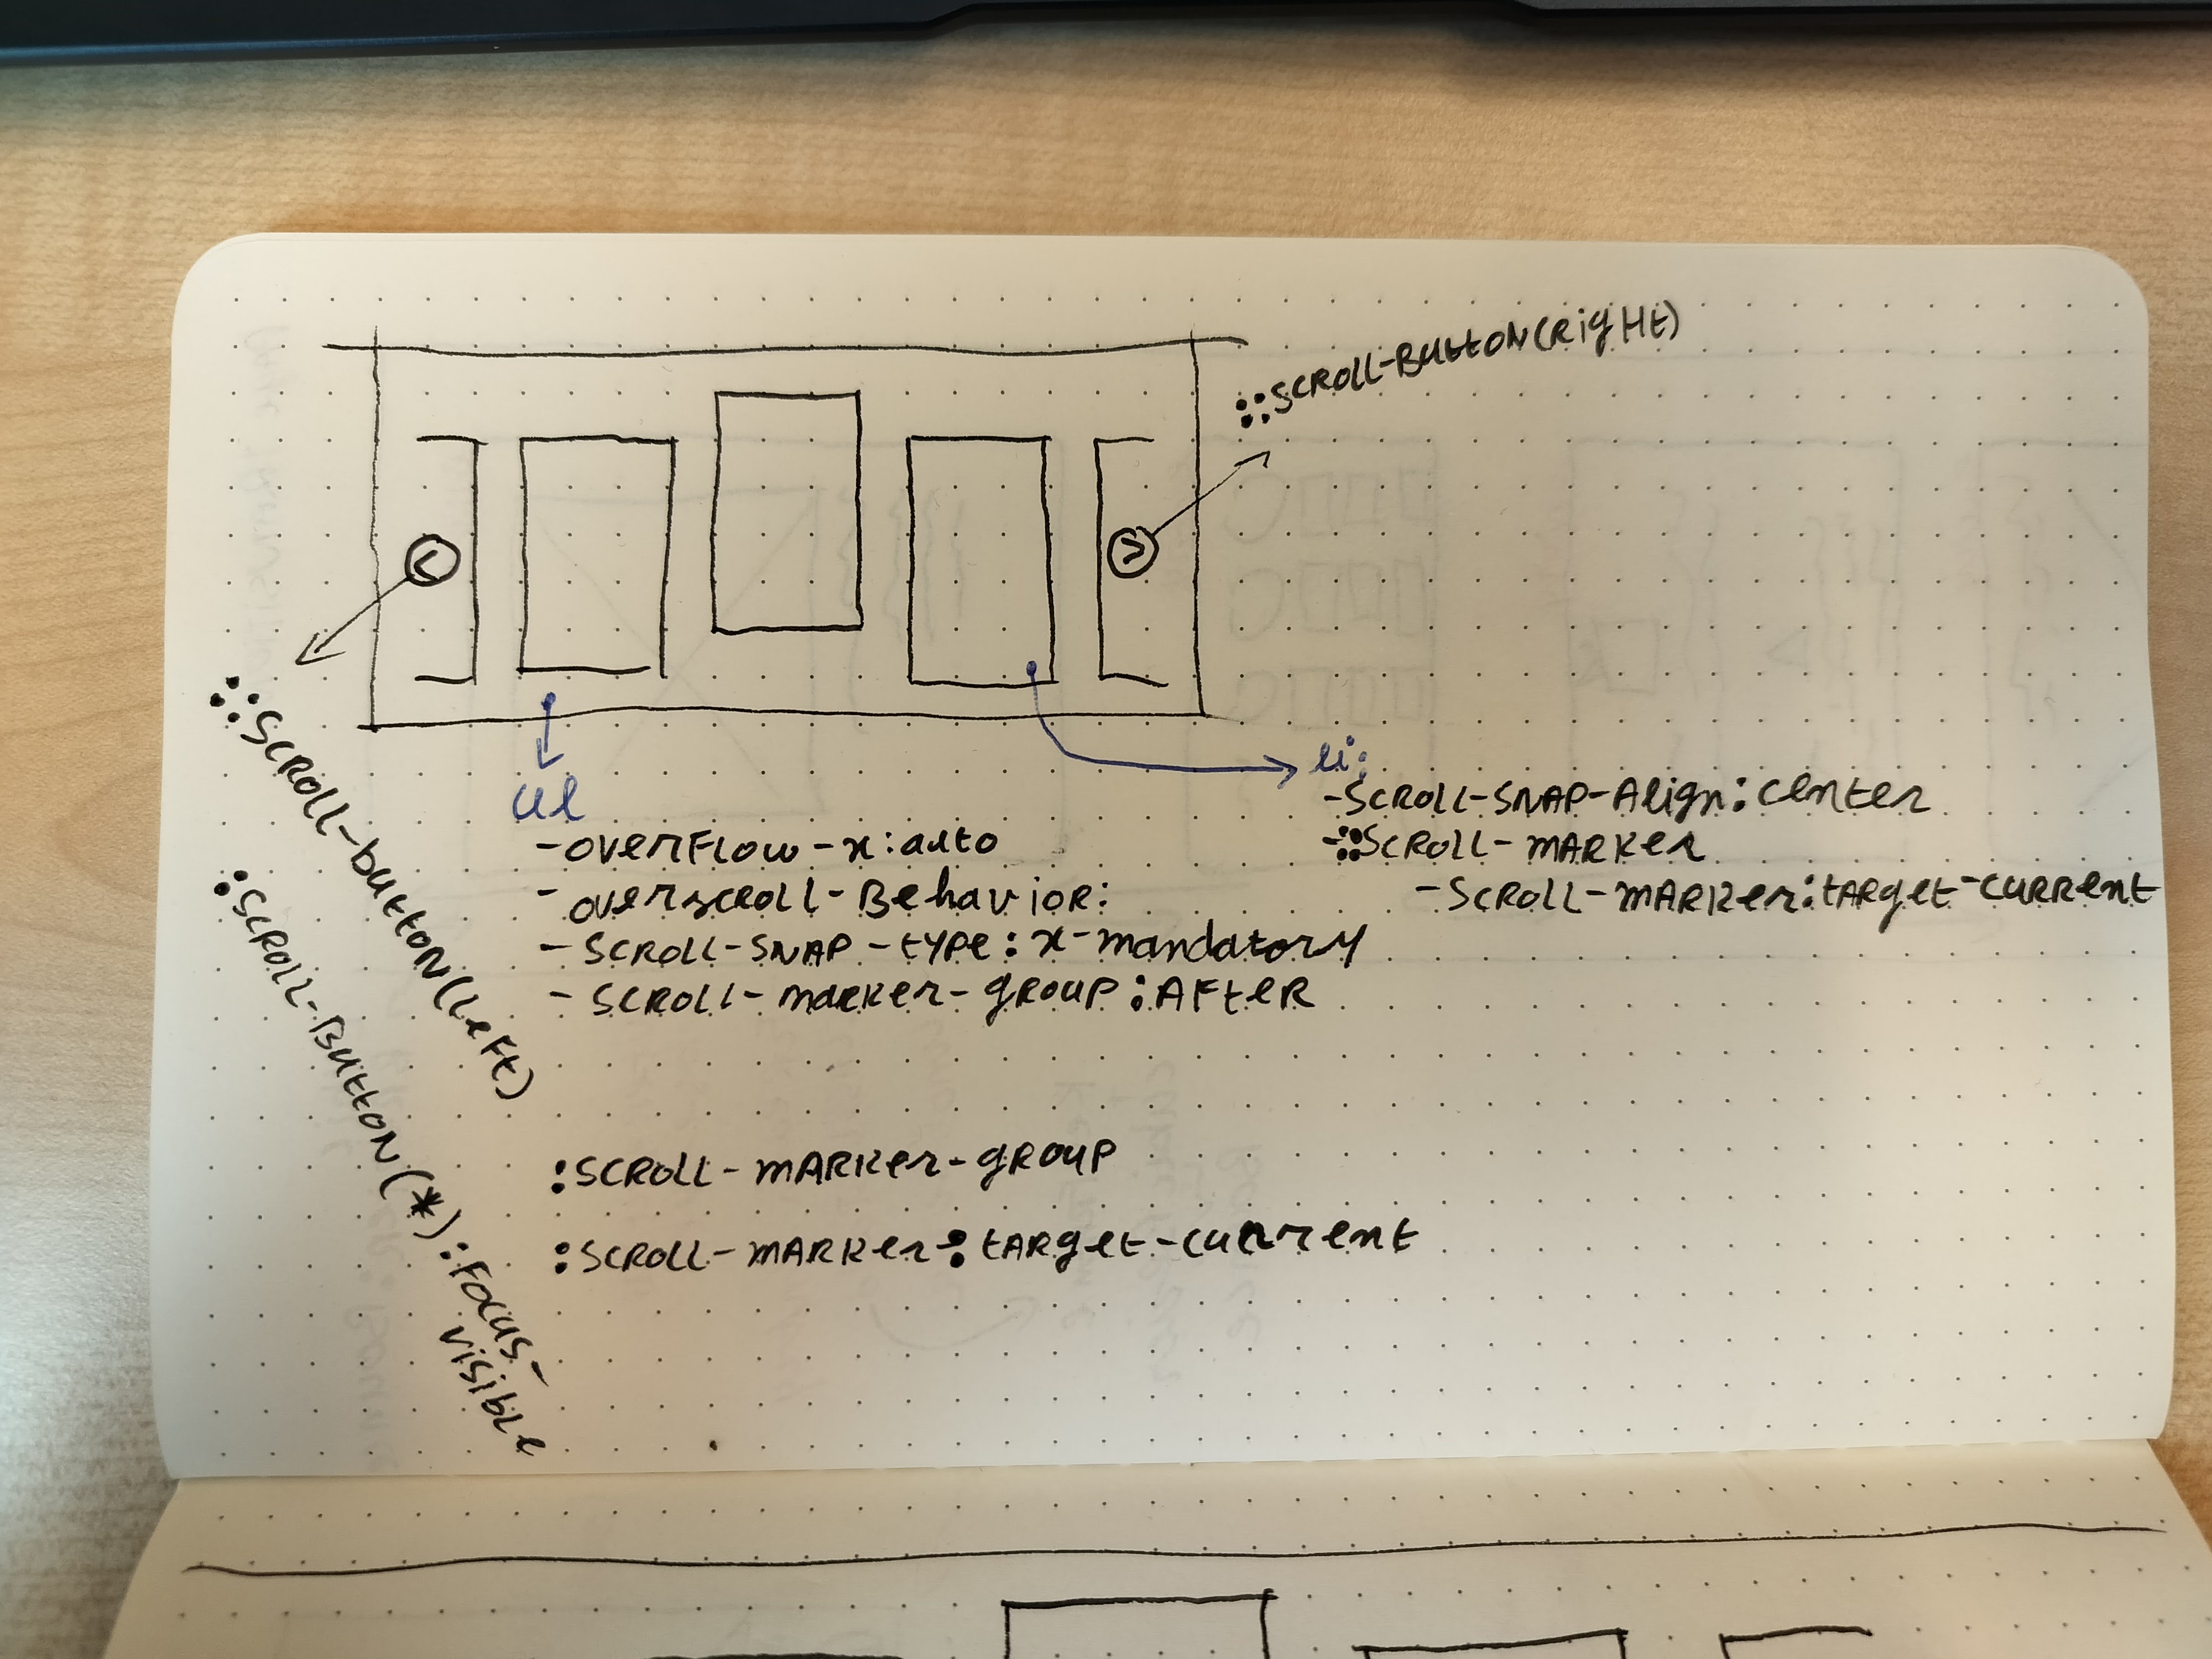 ::SCROLL-BUTTON(RIGHT)
<
>
::SCROLL-BUTTON(LEFT)
:SCROLL-BUTTON(*):FOCUS-
VISIBLE
ul
-OVERFLOW-x:auto
-OVERSCROLL-BEHAVIOR:
-SCROLL-SNAP-TYPE:x-mandatory
-SCROLL-MARKER-GROUP:AFTER
li:
-SCROLL-SNAP-ALIGN:CENTER
-::SCROLL-MARKER
-SCROLL-MARKER:TARGET-CURRENT
:SCROLL-MARKER-GROUP
:SCROLL-MARKER:TARGET-CURRENT